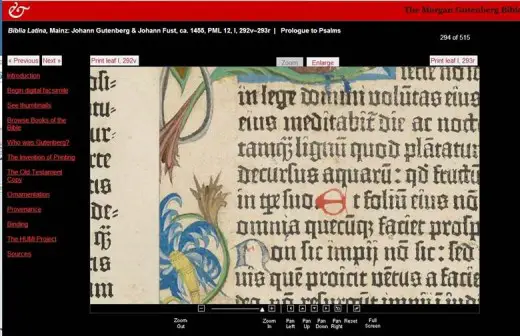 The Morgan Gutenberg Bible
Biblia Latina, Mainz: Johann Gutenberg & Johann Fust, ca. 1455, PML 12, I, 292v–293r | Prologue to Psalms
294 of 515
« Previous Next »
Print leaf I, 292v
Zoom Enlarge
Print leaf I, 293r
Introduction
Begin digital facsimile
See thumbnails
Browse Books of the
Bible
Who was Gutenberg?
The Invention of Printing
The Old Testament
Copy
Ornamentation
Provenance
Binding
The HUMI Project
Sources
in lege domini volūtas eius
eius meditabit᷑ die ac noct
tamq̄ lignū quod plātatu
decursus aquarū: qd̄ fructū
in tꝑe suo Et foliū eius nō
omnia quecūq̄ faciet prosp
Non sic impij nō sic: sed
uis quē proicit ventus a facie
Zoom
Out
Zoom
In
Pan
Left
Pan
Up
Pan
Down
Pan
Right
Reset
Full
Screen